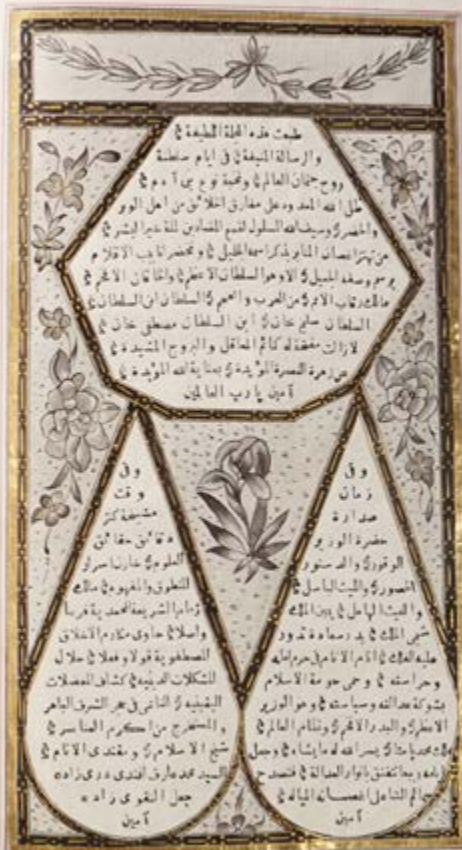 طبعت هذه المجلة اللطيفة
والرسالة المنيفة في ايام سلطنة
روح جثمان العالم ونخبة نوع بني آدم
ظل الله الممدود على مفارق الخلائق من اهل الوبر
والحضر وسيف الله المسلول لقمع المضادين لملة خير البشر
من تهتز اغصان المنابر بذكر اسمه الجليل
وصفه الجميل الا وهو السلطان الاعظم والخاقان الافخم
مالك رقاب الامم من العرب والعجم السلطان ابن السلطان
السلطان سليم خان ابن السلطان مصطفى خان
لازالت كائم المعاقل والبروج المشيدة
من زمرة النصرة المؤيدة بعناية الله المؤبدة
آمين يارب العالمين
وفي
زمان
صدارة
حضرة الوزير
الوقور والدستور
الجسور والليث الباسل
والغيث الهاطل يمين الملك
شمس الملك بدر سعادة تدور
عليه الفلك امام الانام في حرم امانه
وحراسته وحمى حومة الاسلام
بشوكة عدالته وسياسته وهو الوزير
الاعظم والبدر الافخم ونظام العالم
محمد پاشا يسر الله له ما يشاء وجعل
بانوار العدالة
الثنا على
آمين
وفي
وقت
مشيخة كنز
دقائق حقائق
العلوم خازن اسرار
المنطوق والمفهوم مالك
زمام الشريعة المحمدية فرعا
واصلا حاوى مكارم الاخلاق
المصطفوية قولا وفعلا حلال
المشكلات الدينية كشاف المعضلات
اليقينية في حجر الشرف الباهر
والمتفرع من اكرم العناصر
شيخ الاسلام ومقتدى الانام
السيد محمد عارف افندى درى زاده
جعل التقوى زاده
آمين